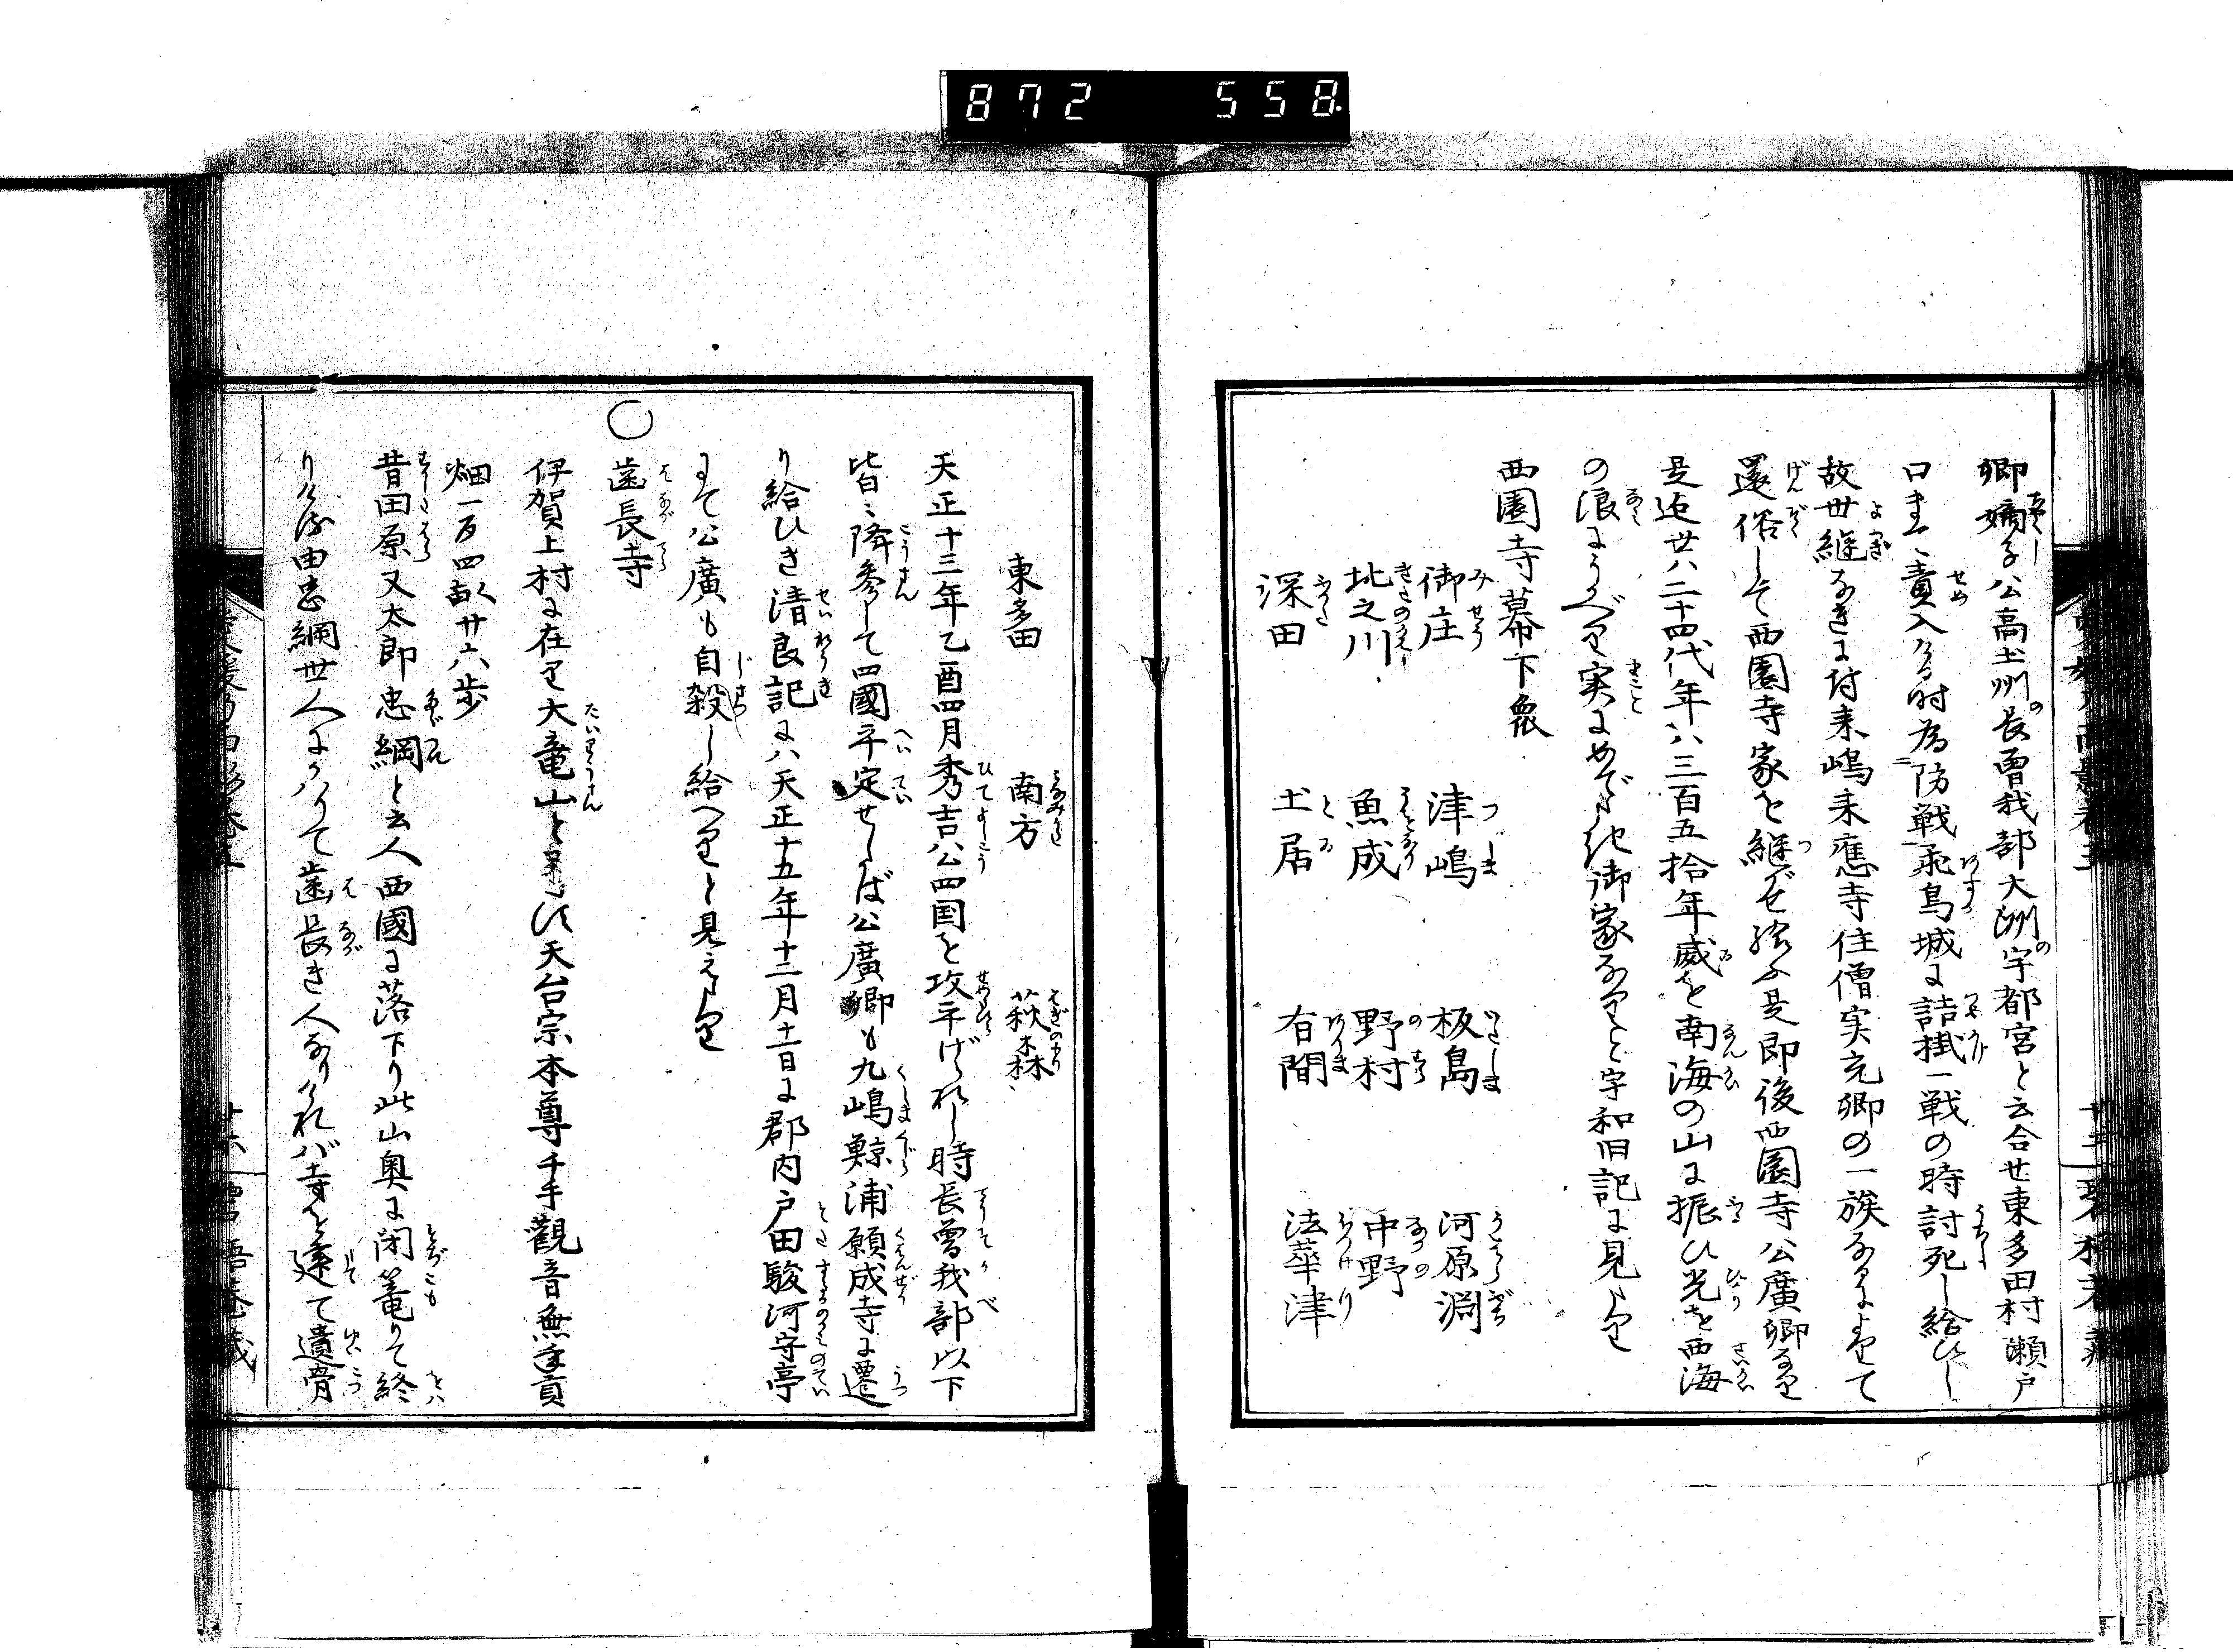 872 558
卿嫡子公高土州の長曽我部大洲の宇都宮と云合せ東多田村瀬戸
口まで責入ける時為防戦飛鳥城に詰掛一戦の時討死し給ひし
故世継なきに付来嶋来應寺住僧実充卿の一族なるによりて
還俗して西園寺家を継せ給ふ是即後西園寺公廣卿なり
是迄廿八二十四代年ハ三百五拾年威を南海の山に振ひ光を西海
の浪にうかべり実にめでたき御家なりと宇和旧記に見えたり
西園寺幕下衆
御庄 津嶋 板島 河原淵
北之川 魚成 野村 中野
深田 土居 有間 法華津
東多田 南方 萩森
天正十三年乙酉四月秀吉公四国を攻平げられし時長曽我部以下
皆々降参して四國平定せしかば公廣卿も九嶋鯨浦願成寺に遷
り給ひき清良記にハ天正十五年十二月十一日に郡内戸田駿河守亭
にて公廣も自殺し給へりと見えたり
○歯長寺
伊賀上村に在り大竜山と号す天台宗本尊千手觀音無年貢
畑一反四畝廿六歩
昔田原又太郎忠綱と云人西國に落下り此山奥に閉篭りて終
りける由忠綱世人にかハりて歯長き人なりけれバ寺を建て遺骨